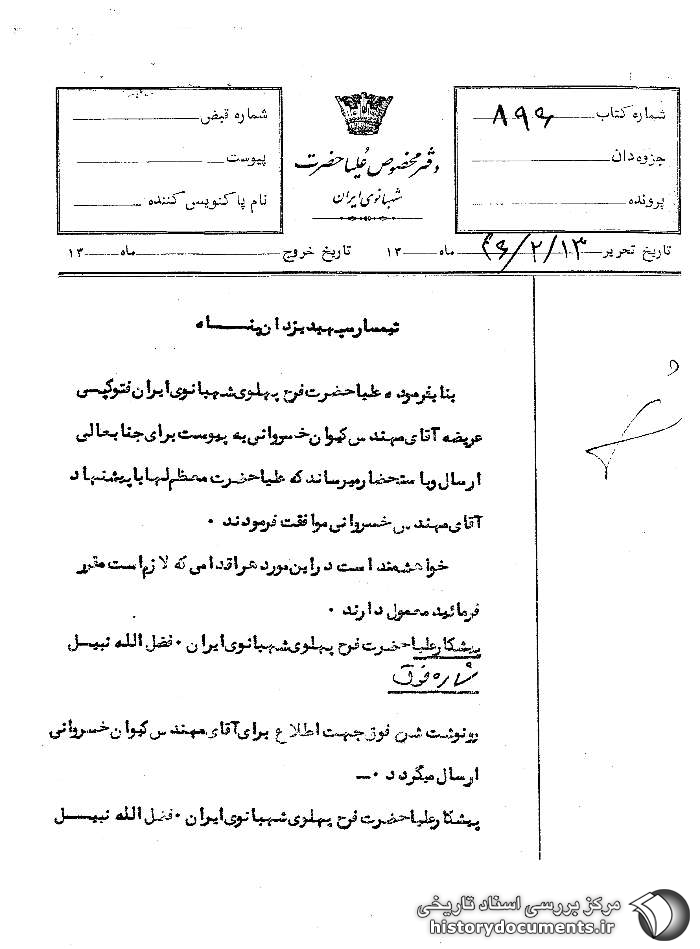 شماره کتاب ۸۹۶
جزوه‌دان
پرونده
دفتر مخصوص علیاحضرت
شهبانوی ایران
شماره قبض
پیوست
نام پاکنویس کننده
تاریخ تحریر ۴۶/۲/۱۳ ماه ۱۳ تاریخ خروج ماه ۱۳
تیمسار سپهبد یزدان پناه
بنا بفرموده علیاحضرت فرح پهلوی شهبانوی ایران فتوکپی
عریضه آقای مهندس کیوان خسروانی به پیوست برای جنابعالی
ارسال و باستحضار میرساند که علیاحضرت معظم لها با پیشنهاد
آقای مهندس خسروانی موافقت فرمودند ۰
خواهشمند است در این مورد هر اقدامی که لازم است مقرر
فرمائید معمول دارند ۰
پیشکار علیاحضرت فرح پهلوی شهبانوی ایران ۰ فضل الله نبیل
شماره فوق
رونوشت شرح فوق جهت اطلاع برای آقای مهندس کیوان خسروانی
ارسال میگردد ۰ــ
پیشکار علیاحضرت فرح پهلوی شهبانوی ایران ۰ فضل الله نبیل
مرکز بررسی اسناد تاریخی
historydocuments.ir